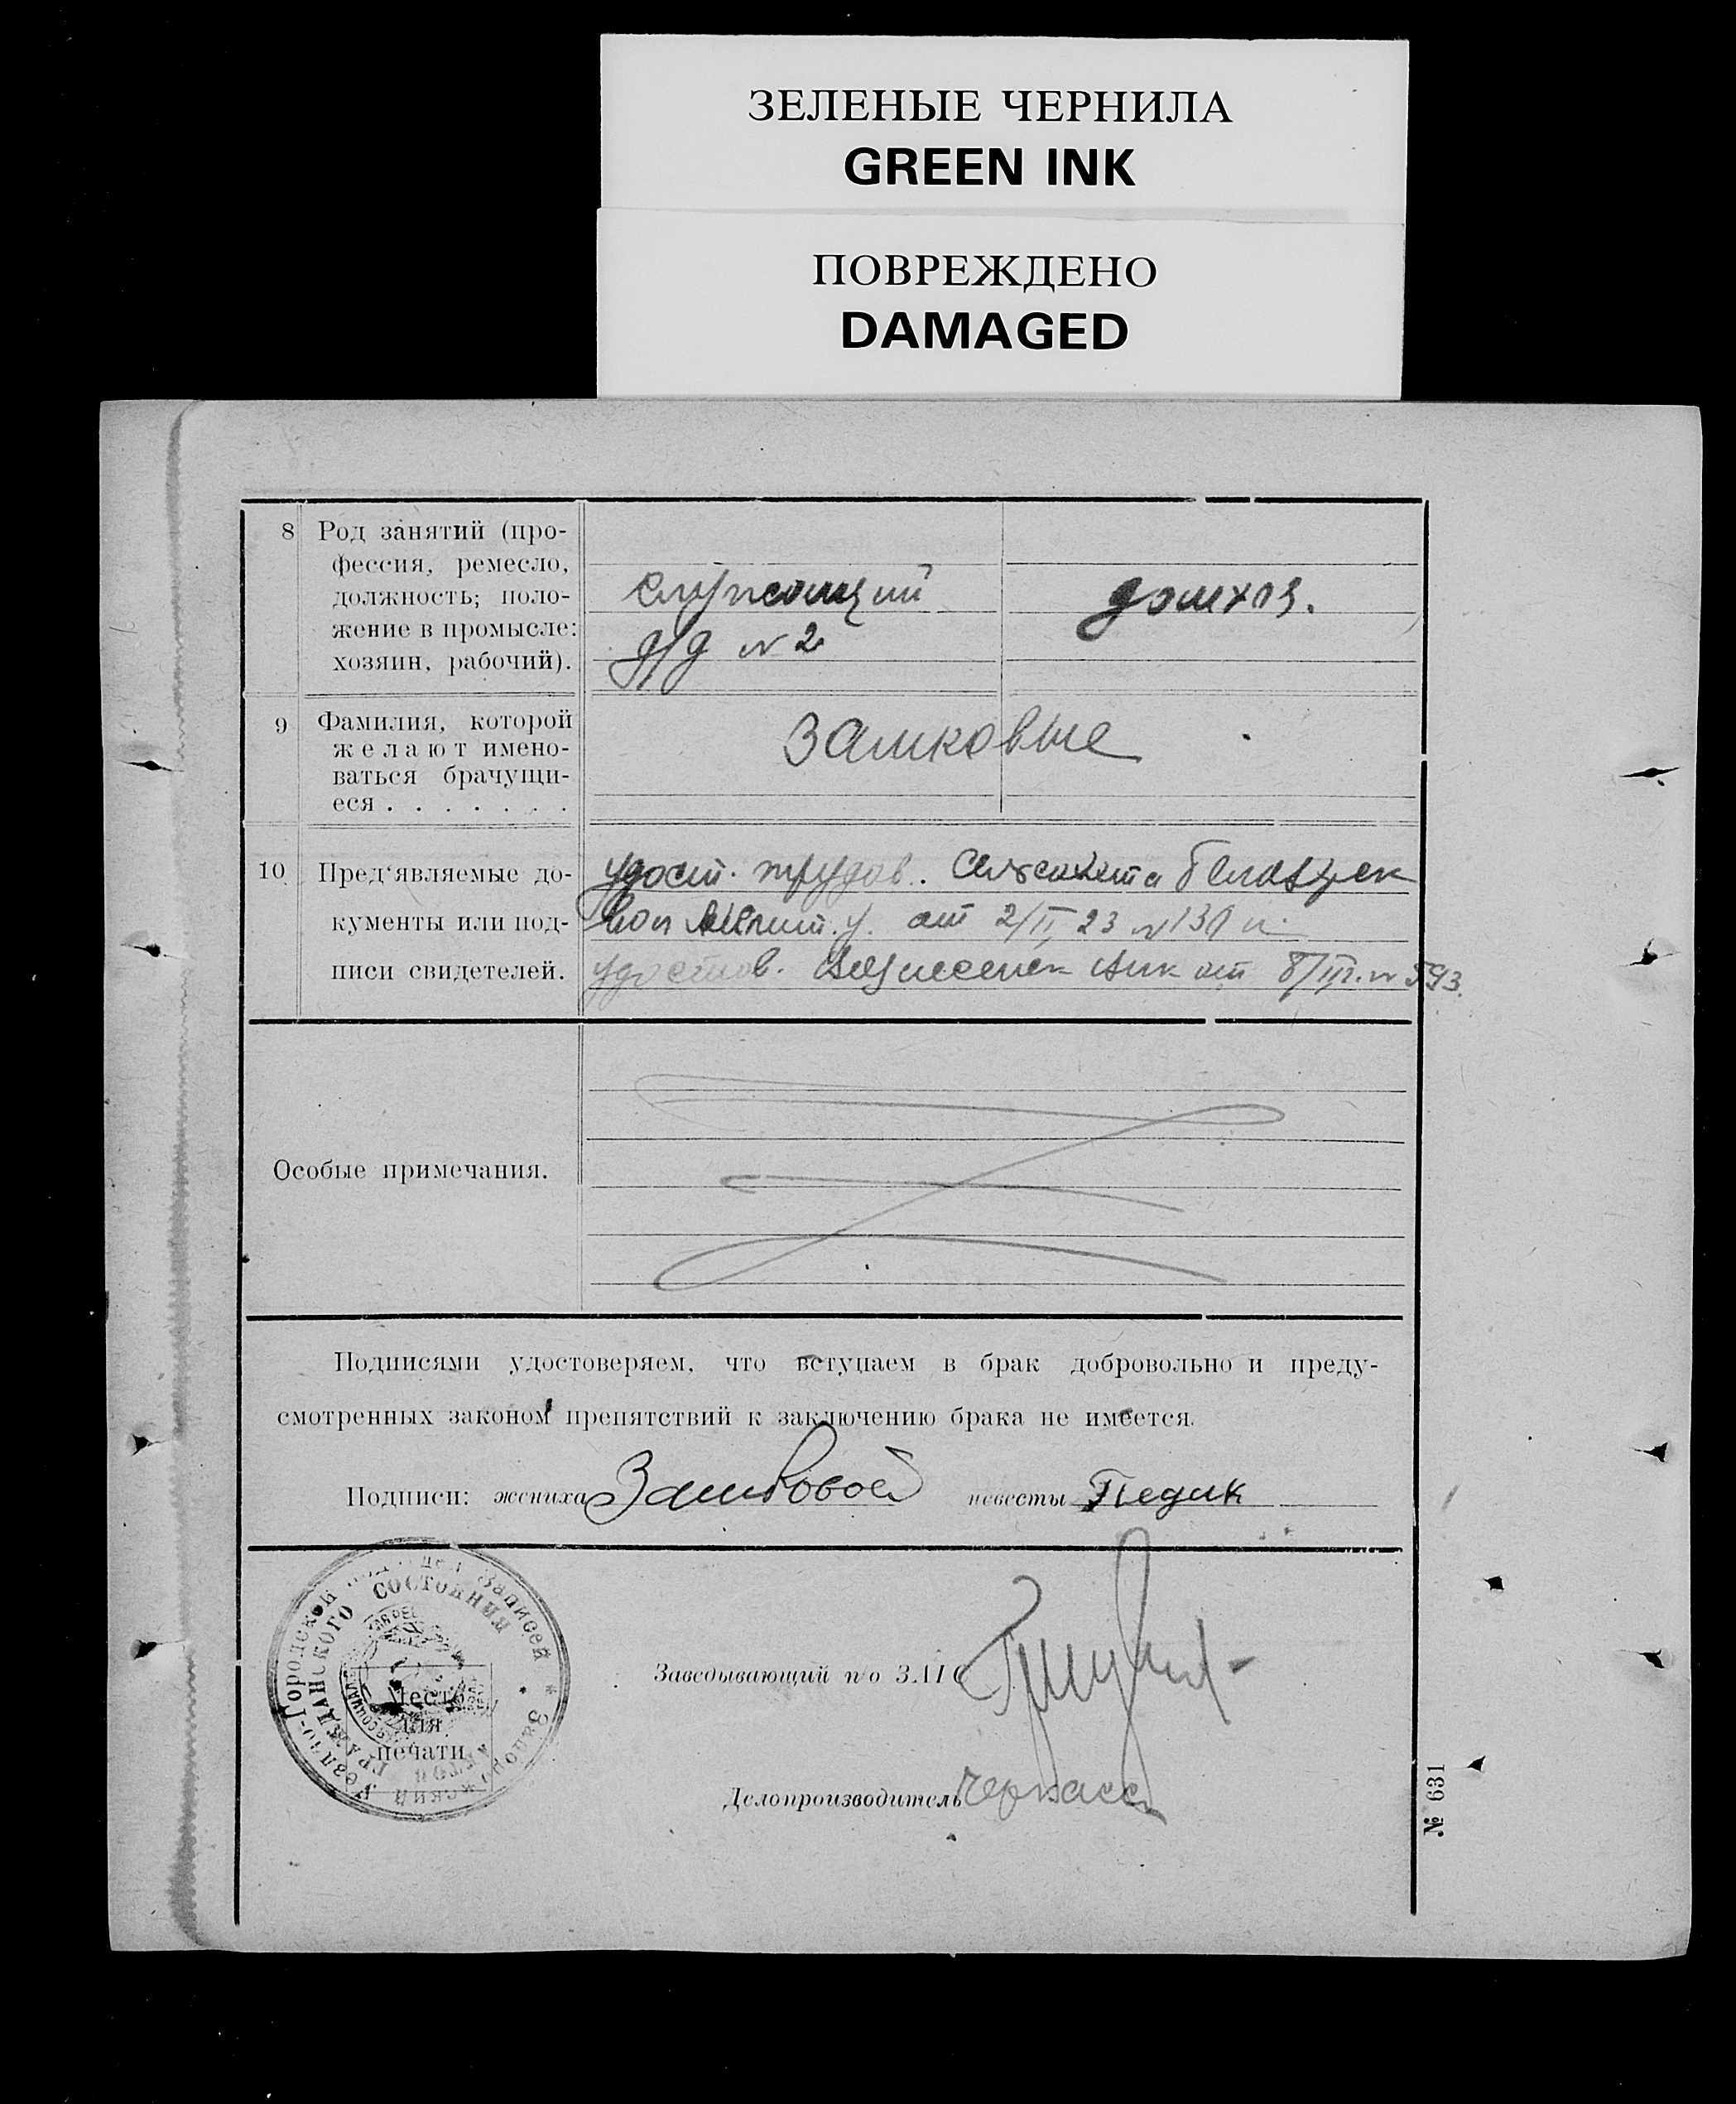 ЗЕЛЕНЫЕ ЧЕРНИЛА
GREEN INK
ПОВРЕЖДЕНО
DAMAGED
8 Род занятий (про-
фессия, ремесло,
должность; поло-
жение в промысле:
хозяин, рабочий).
служащий
д/д № 2
домхоз.
9 Фамилия, которой
желают имено-
ваться брачущи-
еся . . . . . . .
Замковые
10 Пред‘являемые до-
кументы или под-
писи свидетелей.
удост. трудов.
от 2/II 23 №
удостов. от № 593.
Особые примечания.
Подписями удостоверяем, что вступаем в брак добровольно и преду-
смотренных законом препятствий к заключению брака не имеется.
Подписи: жениха Замковой невесты Педик
Заведывающий п/о ЗАГС
Делопроизводитель
Место
для
печати
Уездно-Городской Записей * Запорожский
ГРАЖДАНСКОГО СОСТОЯНИЯ
№ 631